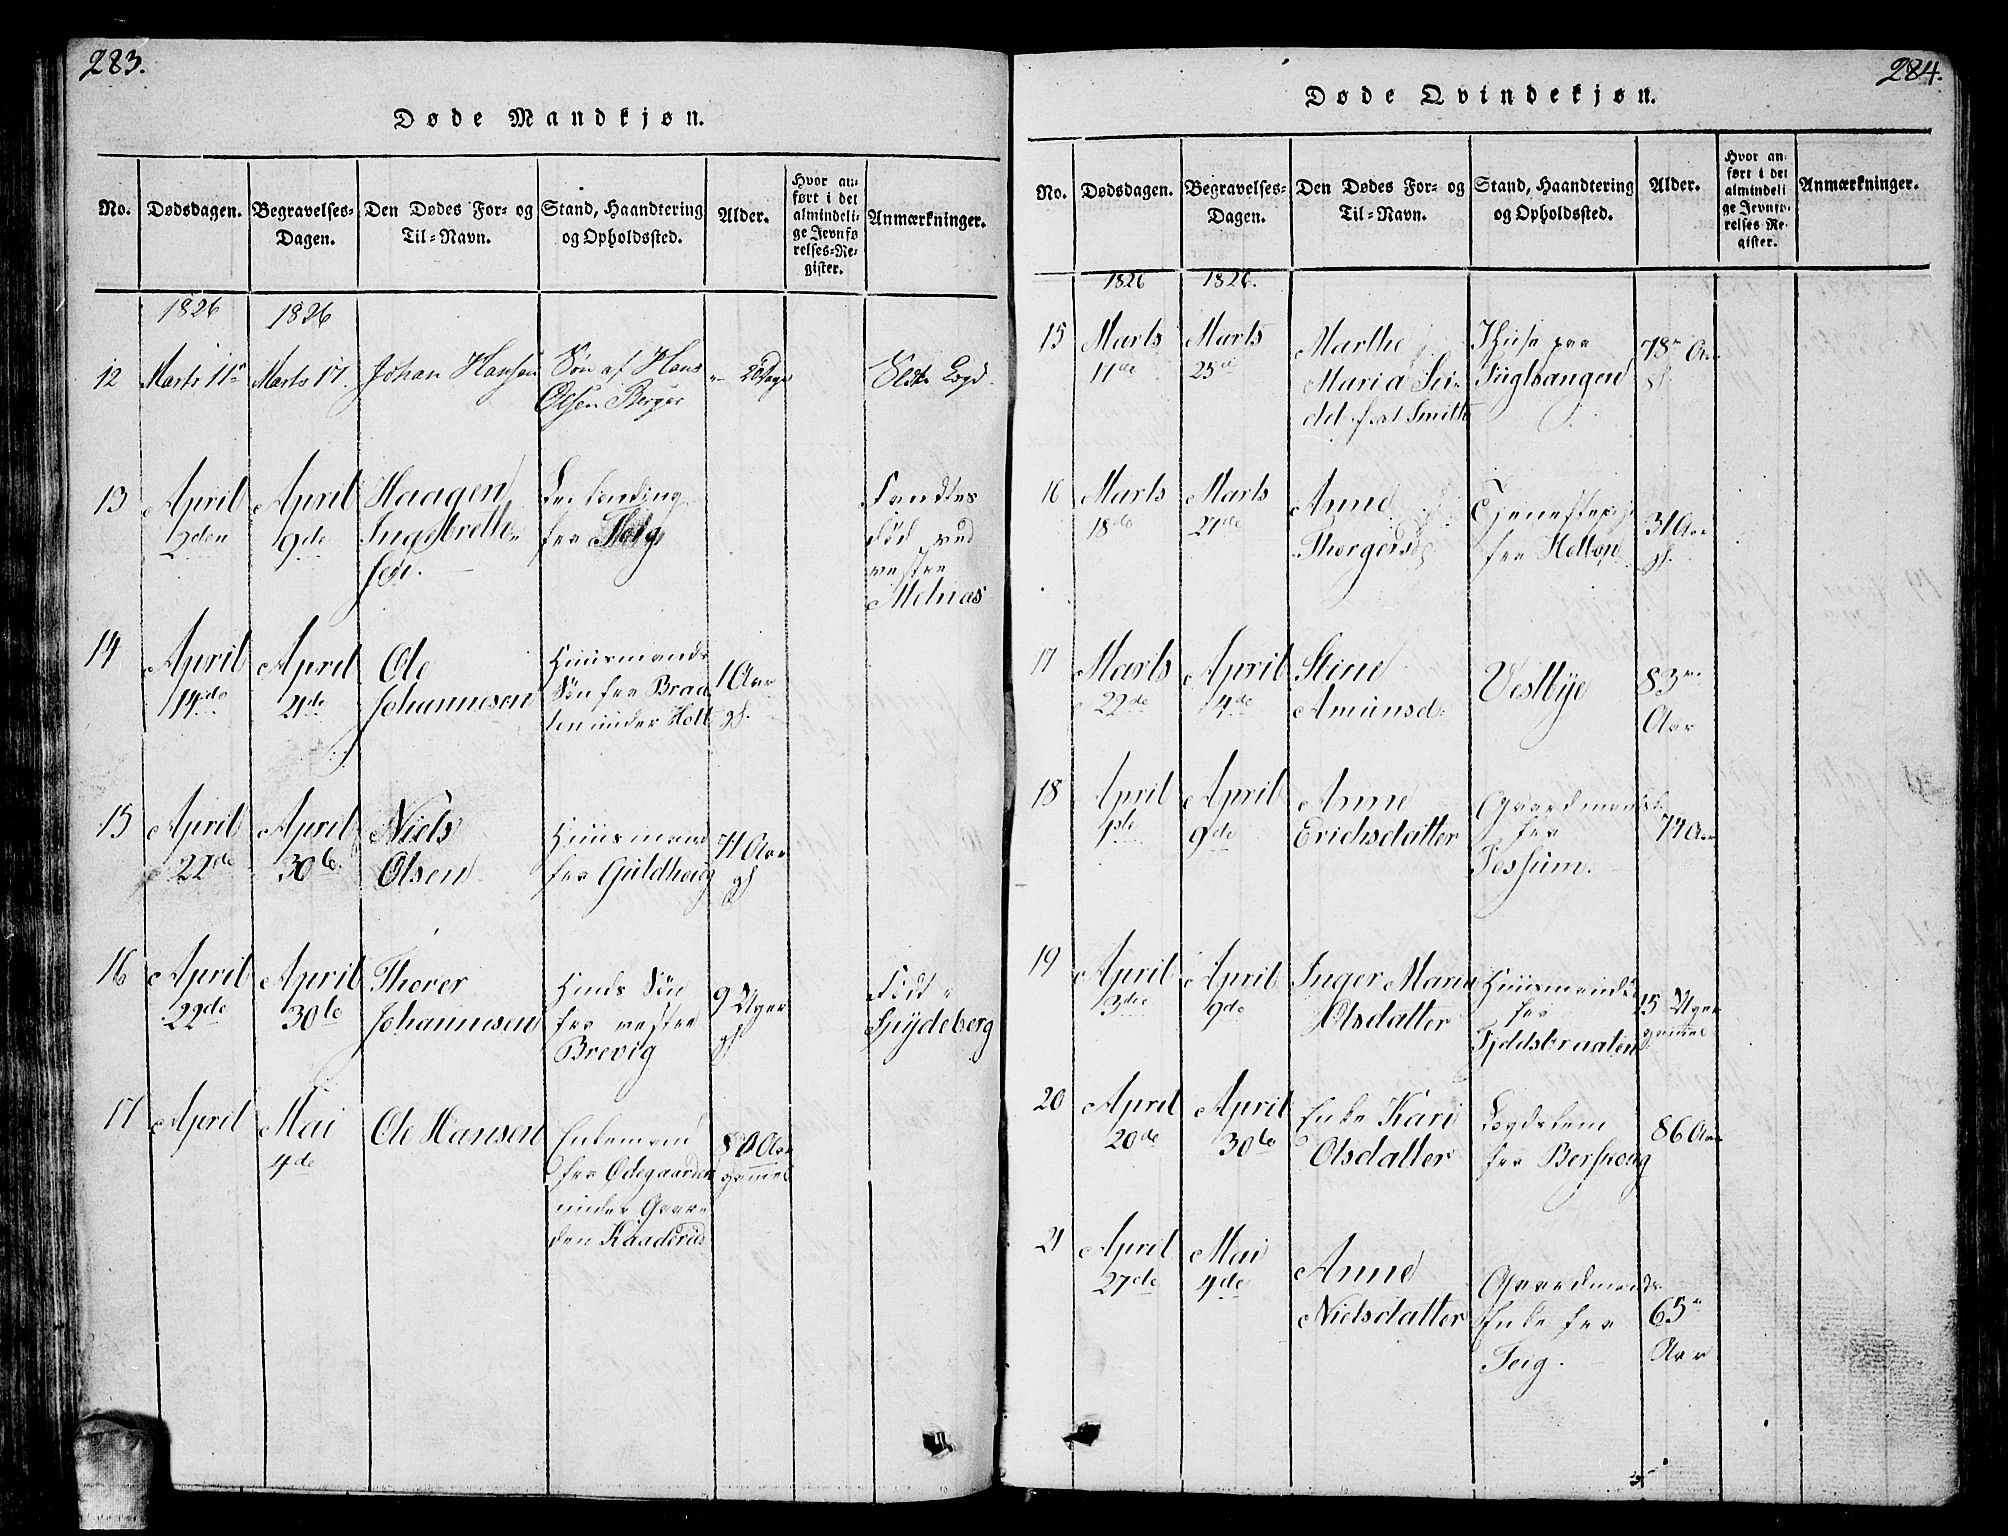 283.
Døde Mandkjøn.
No. Dødsdagen. Begravelses-Dagen. Den Dødes For- og Til-Navn. Stand, Haandtering og Opholdssted. Alder. Hvor anført i det almindelige Jevnførelses-Register. Anmærkninger.
1826 1826
12 Marts 11 Marts 17. Johan Hansen Søn af Hans
Olsen Berger
13 April April Haagen
2den 9de Ingebreth-
sen.
fra
Fandtes
død ved
vestre
Melnas
14 April April Ole Huusmands
14de 21de Johannesen Søn fra Braa
ten under Holt
1 Aar
gl.
15 April April Niels Huusmand
22de 30te Olsen fra Guldhoug
71 Aar
gl.
16 April April Thorer Søn 9 Uger Født
22de 30te Johannesen fra vestre gl. Spydeberg
Brevig
17 April Mai Ole Hansen Enkemand 80 Aar
4de fra Ødegaarden gammel
under Gaar-
den Kaaderud
284.
Døde Qvindekjøn.
No. Dødsdagen. Begravelses-Dagen. Den Dødes For- og Til-Navn. Stand, Haandtering og Opholdssted. Alder. Hvor anført i det almindelige Jevnførelses-Register. Anmærkninger.
1826 1826.
15 Marts Marts Marthe 78 Aar
11de 25de Maria Sei- Fuglsangen gl.
del Smith
16 Marts Marts Anne Tjenestepige 31 Aar
18de 27de Thorgersd: fra gl.
17 Marts April Stine Vestbye 83
22de 4de Amunsd: Aar
18 April April Anne Gaardmands
1ste 9de Erichsdatter fra 77 Aar
Jessum.
19 April April Inger Marie Huusmands 15 Uger
3die 9de Olsdatter fra gammel
20 April April Enke Kari Logdslem 86 Aar
20de 30te Olsdatter fra Berskoug
21 April Mai Anne Gaardmands
27de 4de Nielsdatter Enke fra 65
Teig. Aar